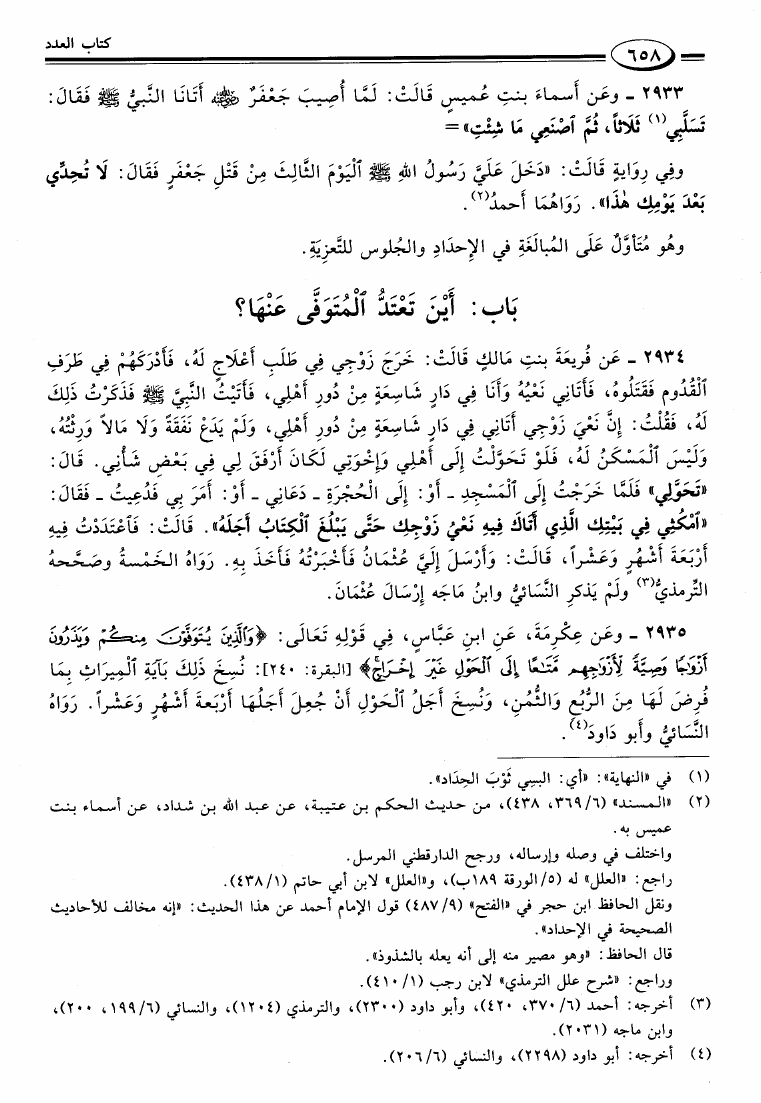 كتاب العدد
٦٥٨
٢٩٣٣ ـ وعَن أسماءَ بنتِ عُميسٍ قَالَتْ: لَمَّا أُصِيبَ جَعْفَرٌ رضي الله عنه أَتَانَا النَّبيُّ ﷺ فَقَالَ:
تَسَلَّبِي(١) ثَلَاثاً، ثُمَّ ٱصْنَعِي مَا شِئْتِ» =
وفِي رِوَايةٍ قَالَتْ: «دَخَلَ عَلَيَّ رَسُولُ اللهِ ﷺ ٱلْيَوْمَ الثَّالِثَ مِنْ قَتْلِ جَعْفَرٍ فَقَالَ: لَا تُحِدِّي
بَعْدَ يَوْمِكِ هٰذَا». رَوَاهُمَا أَحمدُ(٢).
وهُو مُتَأَوَّلٌ عَلَى المُبالَغَةِ في الإِحدَادِ والجُلوس للتَّعزِيَةِ.
بَاب: أَيْنَ تَعْتَدُّ ٱلْمُتَوَفَّى عَنْهَا؟
٢٩٣٤ ـ عَن فُريعَةَ بنتِ مَالكٍ قَالَتْ: خَرَجَ زَوْجِي فِي طَلَبِ أَعْلَاجٍ لَهُ، فَأَدْرَكَهُمْ فِي طَرَفِ
ٱلْقَدُومِ فَقَتَلُوهُ، فَأَتَانِي نَعْيُهُ وَأَنَا فِي دَارٍ شَاسِعَةٍ مِنْ دُورِ أَهْلِي، فَأَتَيْتُ النَّبِيَّ ﷺ فَذَكَرْتُ ذَلِكَ
لَهُ، فَقُلْتُ: إِنَّ نَعْيَ زَوْجِي أَتَانِي فِي دَارٍ شَاسِعَةٍ مِنْ دُورِ أَهْلِي، وَلَمْ يَدَعْ نَفَقَةً وَلَا مَالاً وَرِثْتُهُ،
وَلَيْسَ ٱلْمَسْكَنُ لَهُ، فَلَوْ تَحَوَّلْتُ إِلَى أَهْلِي وَإِخْوَتِي لَكَانَ أَرْفَقَ لِي فِي بَعْضِ شَأْنِي. قَالَ:
«تَحَوَّلِي» فَلَمَّا خَرَجْتُ إِلَى ٱلْمَسْجِدِ ـ أَوْ: إِلَى الْحُجْرَةِ ـ دَعَانِي ـ أَوْ: أَمَرَ بِي فَدُعِيتُ ـ فَقَالَ:
«ٱمْكُثِي فِي بَيْتِكِ الَّذِي أَتَاكِ فِيهِ نَعْيُ زَوْجِكِ حَتَّى يَبْلُغَ ٱلْكِتَابُ أَجَلَهُ». قَالَتْ: فَٱعْتَدَدْتُ فِيهِ
أَرْبَعَةَ أَشْهُرٍ وَعَشْراً، قَالَتْ: وَأَرْسَلَ إِلَيَّ عُثْمَانُ فَأَخْبَرْتُهُ فَأَخَذَ بِهِ. رَوَاهُ الخَمْسةُ وصَحَّحهُ
التِّرمذيُّ(٣) ولَمْ يَذكرِ النَّسَائيُّ وابنُ مَاجَه إِرْسَالَ عُثْمَانَ.
٢٩٣٥ ـ وعَن عِكْرِمَةَ، عَنِ ابنِ عَبَّاسٍ، فِي قَوْلِهِ تَعَالَى: ﴿وَٱلَّذِينَ يُتَوَفَّوْنَ مِنكُمْ وَيَذَرُونَ
أَزْوَٰجًا وَصِيَّةً لِّأَزْوَٰجِهِم مَّتَٰعًا إِلَى ٱلْحَوْلِ غَيْرَ إِخْرَاجٍ﴾ [البقرة: ٢٤٠]: نُسِخَ ذَلِكَ بَآيَةِ ٱلْمِيرَاثِ بِمَا
فُرِضَ لَهَا مِنَ الرُّبُعِ وَالثُّمُنِ، وَنُسِخَ أَجَلُ ٱلْحَوْلِ أَنْ جُعِلَ أَجَلُهَا أَرْبَعَةَ أَشْهُرٍ وَعَشْراً. رَوَاهُ
النَّسائيُّ وأبو دَاودَ(٤).
(١) في «النهاية»: «أي: البسي ثَوْبَ الحِدَاد».
(٢) «المسند» (٣٦٩/٦، ٤٣٨)، من حديث الحكم بن عتيبة، عن عبد الله بن شداد، عن أسماء بنت
عميس به.
واختلف في وصله وإرساله، ورجح الدارقطني المرسل.
راجع: «العلل» له (٥/الورقة ١٨٩ب)، و«العلل» لابن أبي حاتم (٤٣٨/١).
ونقل الحافظ ابن حجر في «الفتح» (٤٨٧/٩) قول الإمام أحمد عن هذا الحديث: «إنه مخالف للأحاديث
الصحيحة في الإحداد».
قال الحافظ: «وهو مصير منه إلى أنه يعله بالشذوذ».
وراجع: «شرح علل الترمذي» لابن رجب (٤١٠/١).
(٣) أخرجه: أحمد (٣٧٠/٦، ٤٢٠)، وأبو داود (٢٣٠٠)، والترمذي (١٢٠٤)، والنسائي (١٩٩/٦، ٢٠٠)،
وابن ماجه (٢٠٣١).
(٤) أخرجه: أبو داود (٢٢٩٨)، والنسائي (٢٠٦/٦).